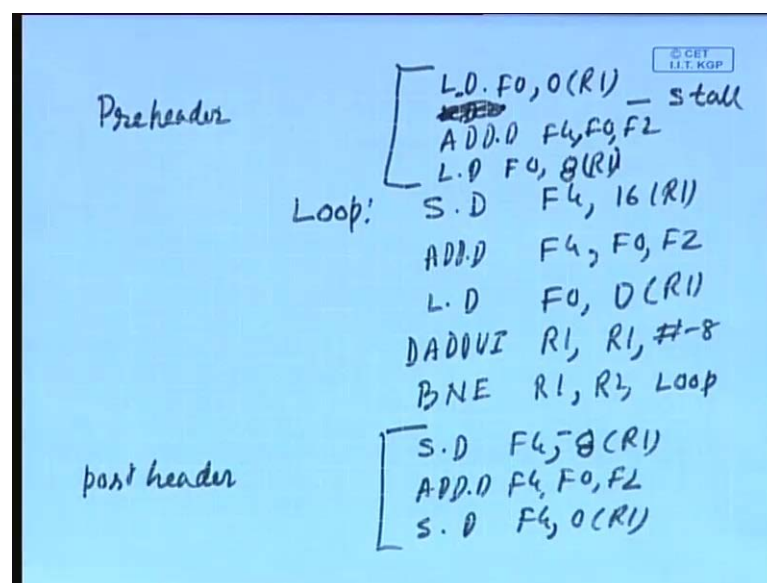 © CET
I.I.T. KGP
Preheader
L.D. F0, 0(R1) _ stall
ADD.D F4, F0, F2
L.D F0, 8(R1)
Loop: S.D F4, 16(R1)
ADD.D F4, F0, F2
L.D F0, 0(R1)
DADDUI R1, R1, #-8
BNE R1, R2, Loop
post header
S.D F4, -8(R1)
ADD.D F4, F0, F2
S.D F4, 0(R1)